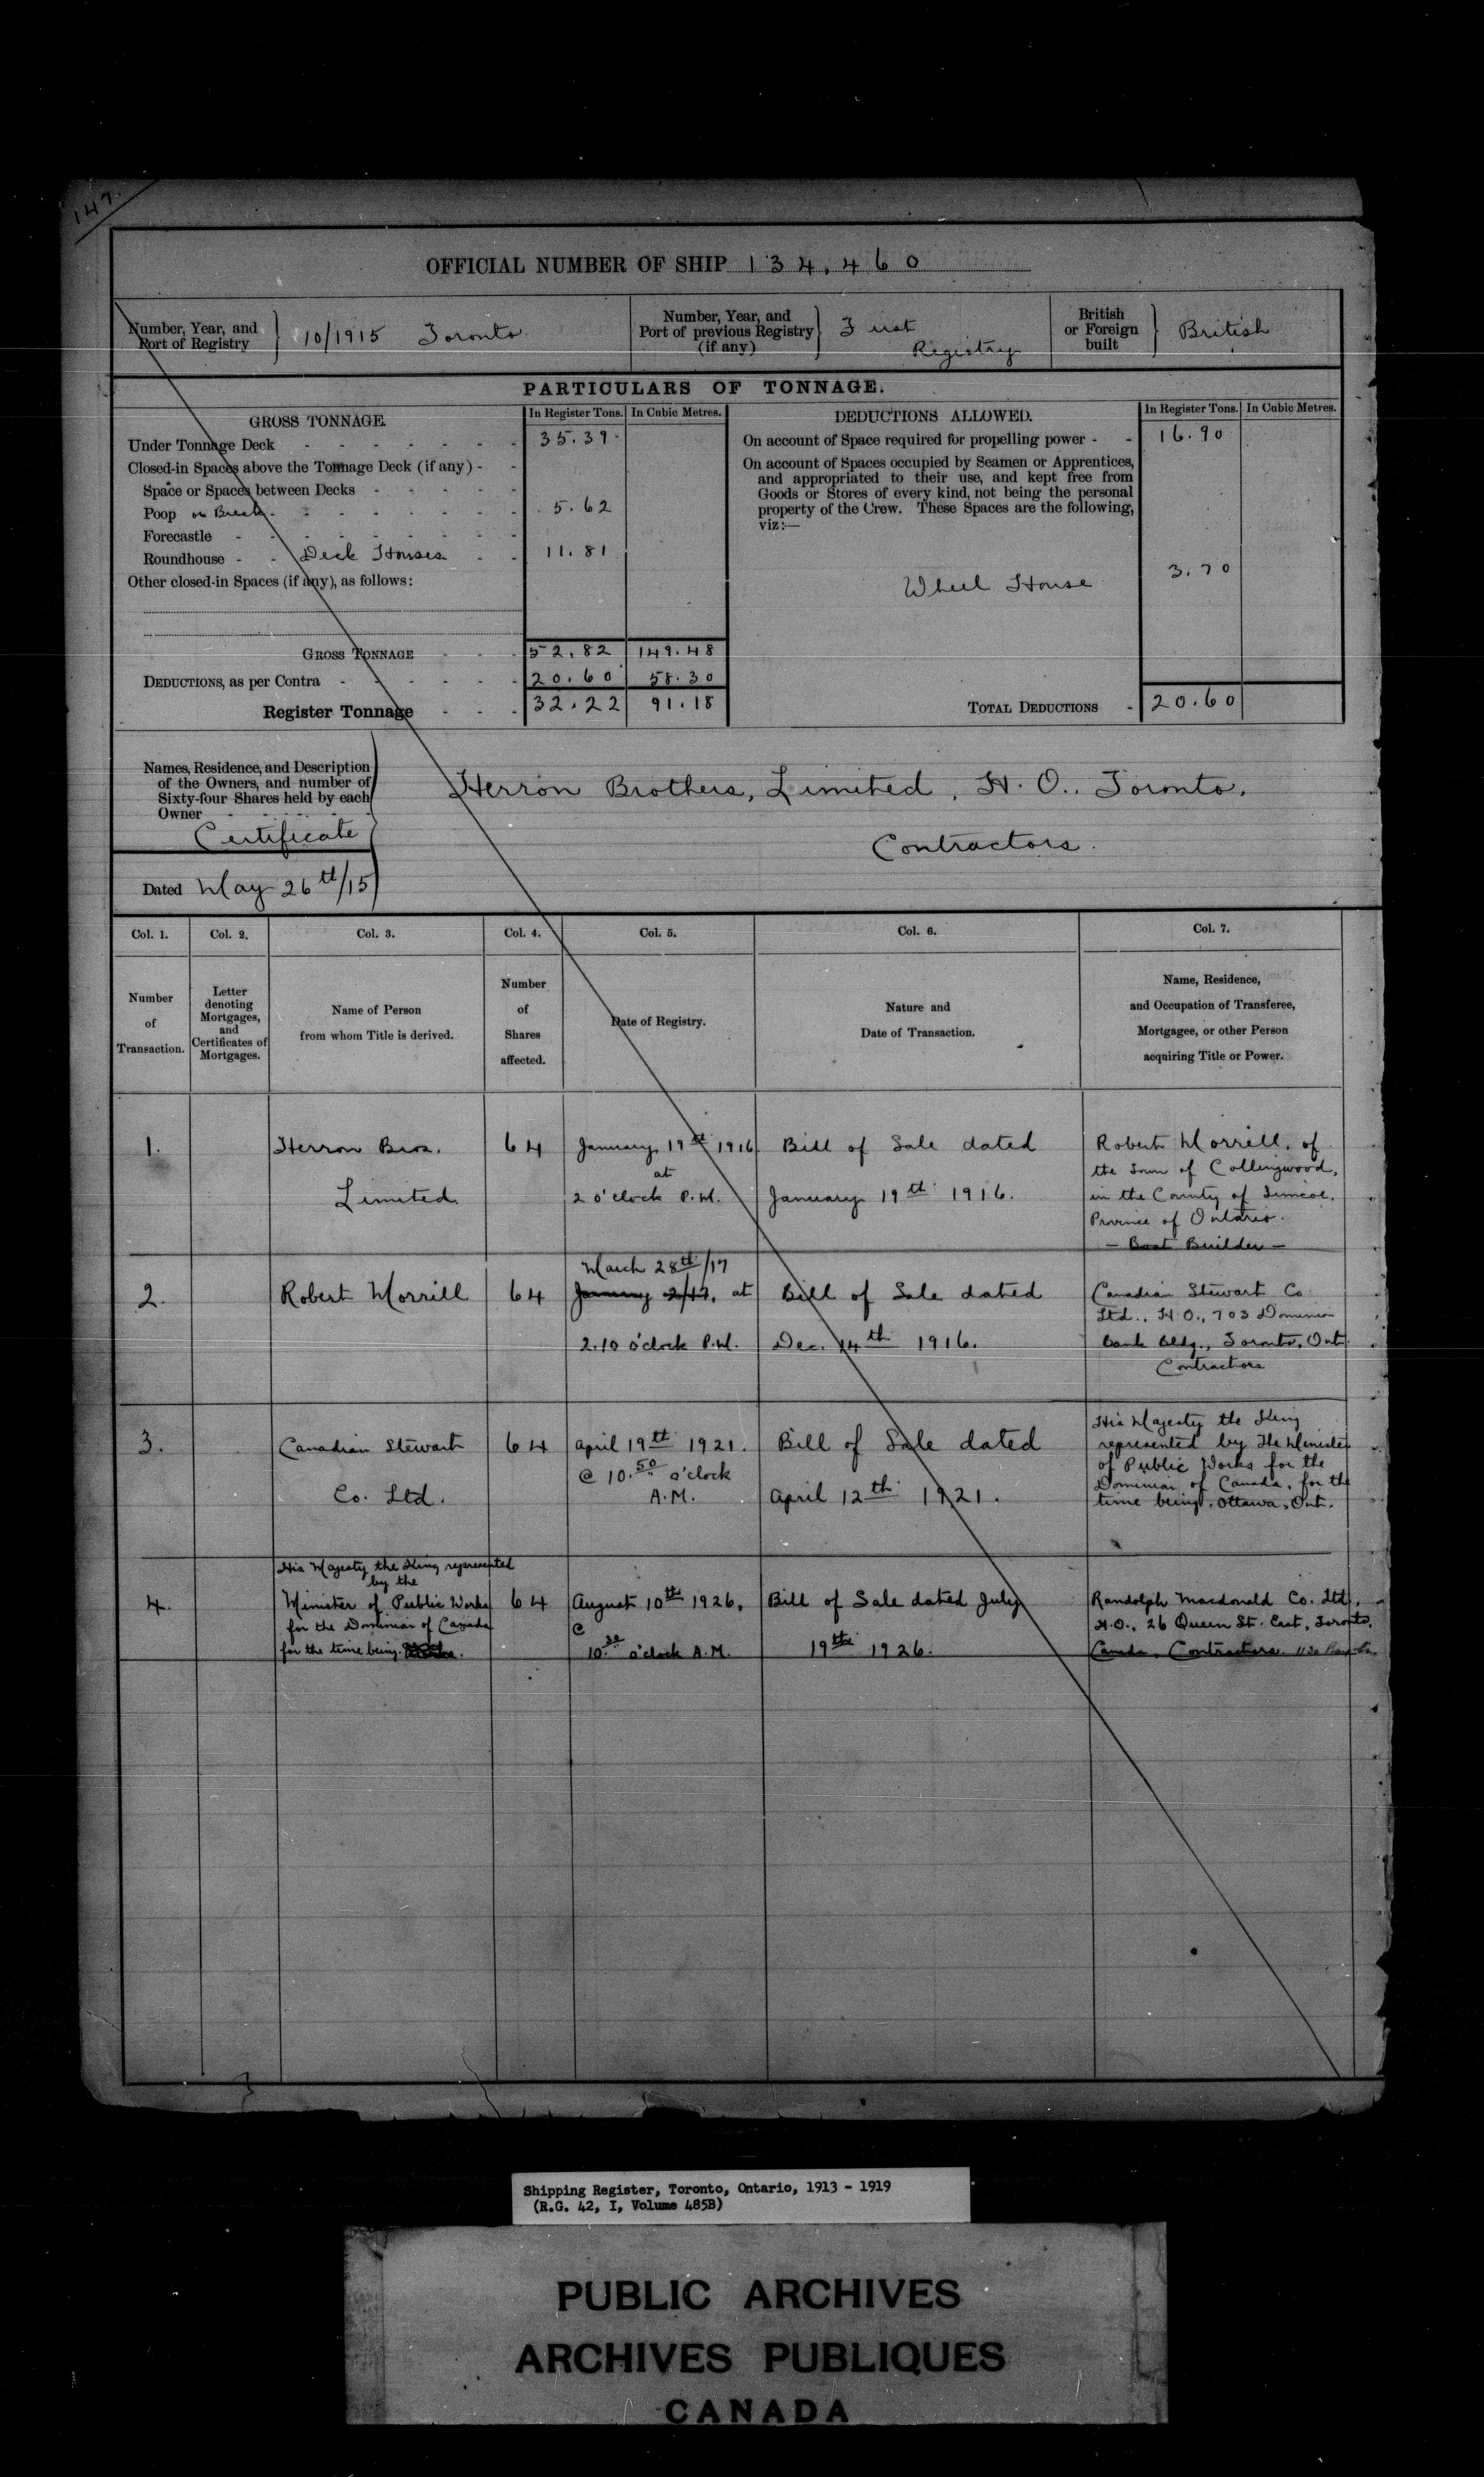 147.
OFFICIAL NUMBER OF SHIP 134,460
Number, Year, and Port of Registry } 10/1915 Toronto.
Number, Year, and Port of previous Registry (if any) } First Registry
British or Foreign built } British
PARTICULARS OF TONNAGE.
GROSS TONNAGE. In Register Tons. In Cubic Metres.
Under Tonnage Deck - - - - - - - 35.39
Closed-in Spaces above the Tonnage Deck (if any) - -
Space or Spaces between Decks - - - - -
Poop or Break - - - - - - - 5.62
Forecastle - - - - - - - -
Roundhouse - - Deck Houses - - 11.81
Other closed-in Spaces (if any), as follows:
GROSS TONNAGE - - - 52.82 149.48
DEDUCTIONS, as per Contra - - - - - - 20.60 58.30
Register Tonnage - - - 32.22 91.18
DEDUCTIONS ALLOWED. In Register Tons. In Cubic Metres.
On account of Space required for propelling power - - 16.90
On account of Spaces occupied by Seamen or Apprentices,
and appropriated to their use, and kept free from
Goods or Stores of every kind, not being the personal
property of the Crew. These Spaces are the following,
viz:—
Wheel House 3.70
TOTAL DEDUCTIONS - 20.60
Names, Residence, and Description
of the Owners, and number of
Sixty-four Shares held by each
Owner - - - - - -
Certificate
Dated May 26th/15
Herron Brothers, Limited, H.O. Toronto.
Contractors.
Col. 1. Col. 2. Col. 3. Col. 4. Col. 5. Col. 6. Col. 7.
Number of Transaction.
Letter denoting Mortgages, and Certificates of Mortgages.
Name of Person from whom Title is derived.
Number of Shares affected.
Date of Registry.
Nature and Date of Transaction.
Name, Residence, and Occupation of Transferee, Mortgagee, or other Person acquiring Title or Power.
1.
Herron Bros.
Limited.
64
January 19th 1916
at
2 o'clock P.M.
Bill of Sale dated
January 19th 1916.
Robert Morrill, of
the Town of Collingwood,
in the County of Simcoe,
Province of Ontario.
— Boat Builder —
2.
Robert Morrill
64
March 28th/17
January 2/17, at
2.10 o'clock P.M.
Bill of Sale dated
Dec. 14th 1916.
Canadian Stewart Co.
Ltd., H.O., 703 Dominion
Bank Bldg., Toronto, Ont.
Contractors
3.
Canadian Stewart
Co. Ltd.
64
April 19th 1921.
@ 10.50 o'clock
A.M.
Bill of Sale dated
April 12th 1921.
His Majesty the King
represented by The Minister
of Public Works for the
Dominion of Canada, for the
time being. Ottawa, Ont.
4.
His Majesty the King represented
by the
Minister of Public Works
for the Dominion of Canada
for the time being.
64
August 10th 1926.
@
10.30 o'clock A.M.
Bill of Sale dated July
19th 1926.
Randolph Macdonald Co. Ltd.,
H.O., 26 Queen St. East, Toronto,
Canada, Contractors.
Shipping Register, Toronto, Ontario, 1913 - 1919
(R.G. 42, I, Volume 485B)
PUBLIC ARCHIVES
ARCHIVES PUBLIQUES
CANADA